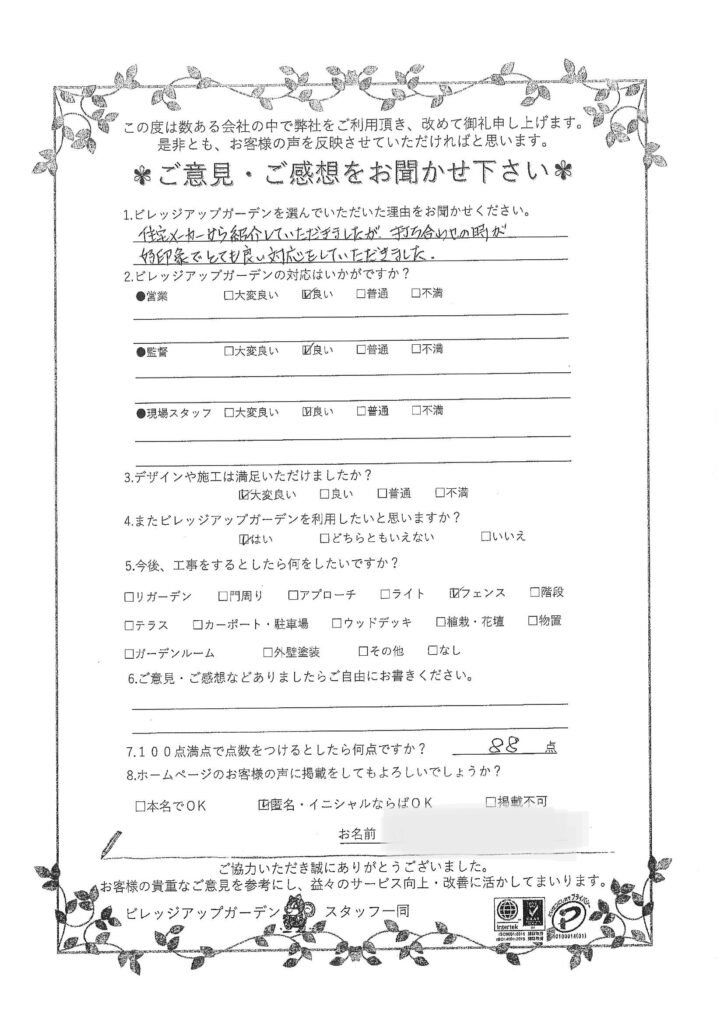 この度は数ある会社の中で弊社をご利用頂き、改めて御礼申し上げます。
是非とも、お客様の声を反映させていただければと思います。
ご意見・ご感想をお聞かせ下さい
1.ビレッジアップガーデンを選んでいただいた理由をお聞かせください。
住宅メーカーから紹介していただきましたが、打ち合いせの時が
好印象でとても良い対応をしていただきました.
2.ビレッジアップガーデンの対応はいかがですか？
●営業 □大変良い ☑良い □普通 □不満
●監督 □大変良い ☑良い □普通 □不満
●現場スタッフ □大変良い ☑良い □普通 □不満
3.デザインや施工は満足いただけましたか？
☑大変良い □良い □普通 □不満
4.またビレッジアップガーデンを利用したいと思いますか？
☑はい □どちらともいえない □いいえ
5.今後、工事をするとしたら何をしたいですか？
□リガーデン □門周り □アプローチ □ライト ☑フェンス □階段
□テラス □カーポート・駐車場 □ウッドデッキ □植栽・花壇 □物置
□ガーデンルーム □外壁塗装 □その他 □なし
6.ご意見・ご感想などありましたらご自由にお書きください。
7.１００点満点で点数をつけるとしたら何点ですか？ 88 点
8.ホームページのお客様の声に掲載をしてもよろしいでしょうか？
□本名でOK ☑匿名・イニシャルならばOK □掲載不可
お名前
ご協力いただき誠にありがとうございました。
お客様の貴重なご意見を参考にし、益々のサービス向上・改善に活かしてまいります。
ビレッジアップガーデン スタッフ一同
intertek